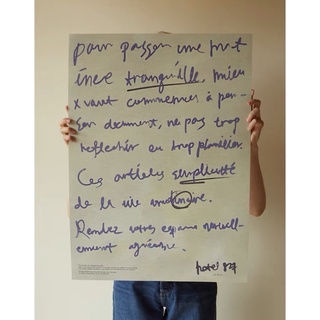 pour passer une mat
inee tranquille, mieu
x vaut commencer à pen-
ser document, ne pas trop
reflechir ou trop planifier.
Ces articles simplicité
de la vie ordinaire.
Rendez votre espace naturell-
ement agréable.
hotel 827